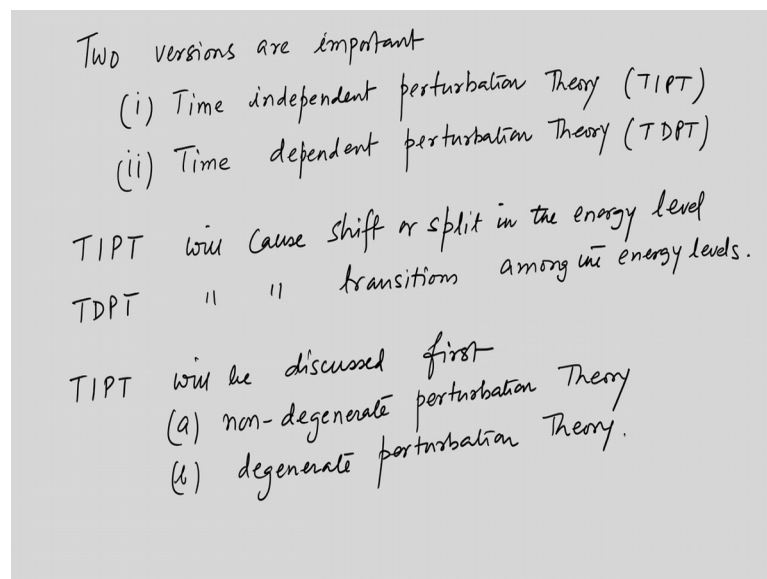 Two versions are important
(i) Time independent perturbation Theory (TIPT)
(ii) Time dependent perturbation Theory (TDPT)
TIPT will cause shift or split in the energy level
TDPT " " transitions among the energy levels.
TIPT will be discussed first
(a) non-degenerate perturbation Theory
(b) degenerate perturbation Theory.